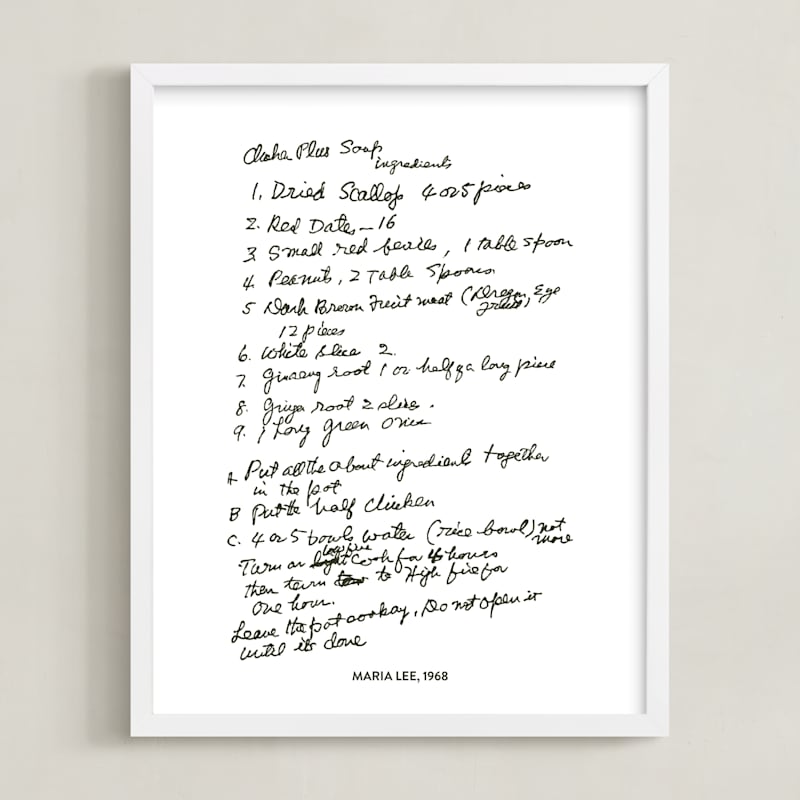 Plus Soup
ingredients
1. Dried Scallop 4 or 5 pieces
2. Red Dates - 16
3 Small red berries, 1 table spoon
4. Peanuts, 2 Table Spoons
5 Dark Brown Fruit meat (Dragon, Eye
fruits)
12 pieces
6. White slice 2.
7. Ginseng root 1 or half of a long piece
8. Ginger root 2 slices.
9. 1 Long green onion
A Put all the about ingredients together
in the pot
B Put the half chicken
C. 4 or 5 bowls water (rice bowl) not
more
low fire
Turn on light Cook for 4 hours
then turn to High fire for
one hour.
Leave the pot cookay, Do not open it
until it's done
MARIA LEE, 1968